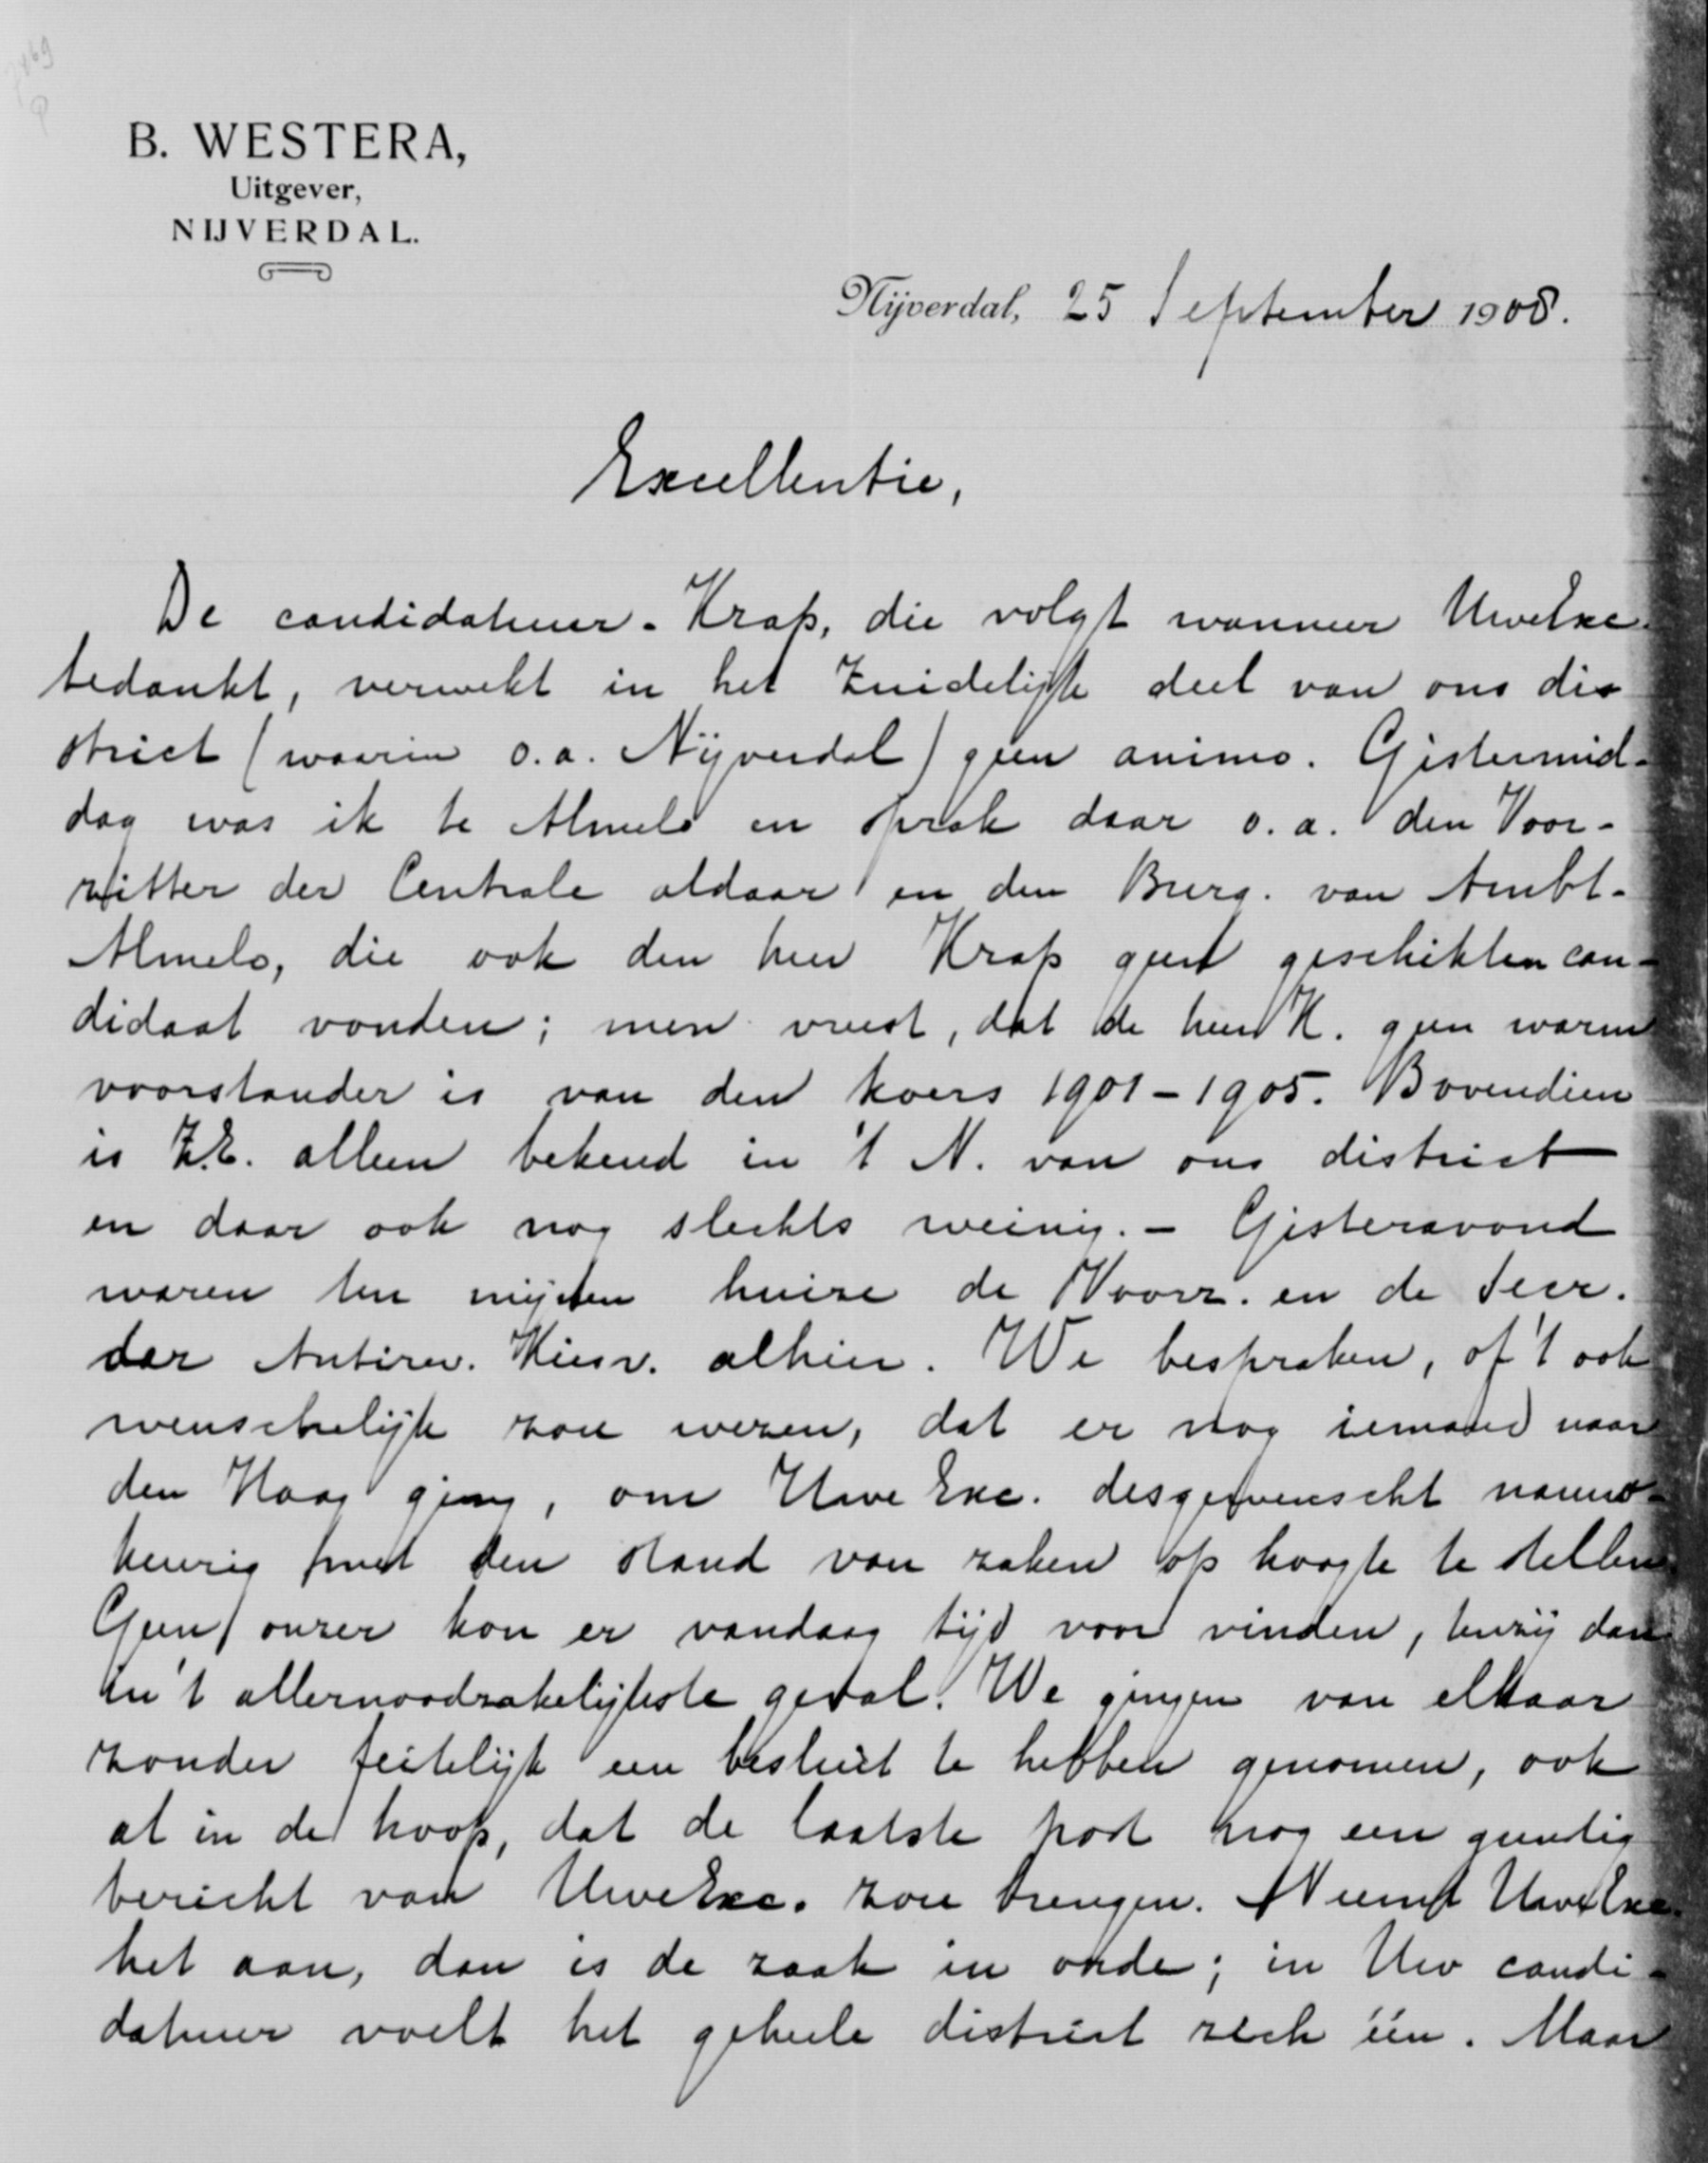 B. WESTERA,
Uitgever,
NIJVERDAL.
Nijverdal, 25 September 1908.
Excellentie,
De candidatuur-Krap, die volgt wanneer UweExc.
bedankt, verwekt in het Zuidelijk deel van ons dis
trict (waarin o.a. Nijverdal) geen animo. Gistermid-
dag was ik te Almelo en sprak daar o.a. den Voor-
zitter der Centrale aldaar en den Burg. van Ambt-
Almelo, die ook den heer Krap geen geschikten can-
didaat vonden; men vreest, dat de heer K. geen warm
voorstander is van den koers 1901-1905. Bovendien
is Z.E. alleen bekend in 't N. van ons district
en daar ook nog slechts weinig. - Gisteravond
waren ten mijnen huize de Voorz. en de Secr.
der Antirev. Kiesv. alhier. We bespraken, of 't ook
wenschelijk zou wezen, dat er nog iemand naar
den Haag ging, om Uwe Exc. desgewenscht nauw-
keurig met den stand van zaken op hoogte te stellen.
Geen onzer kon er vandaag tijd voor vinden, tenzij dan
in 't allernoodzakelijkste geval. We gingen van elkaar
zonder feitelijk een besluit te hebben genomen, ook
al in de hoop, dat de laatste post nog een gunstig
bericht van UweExc. zou brengen. Neemt UweExc.
het aan, dan is de zaak in orde; in Uw candi-
datuur voelt het geheele district zich één. Maar